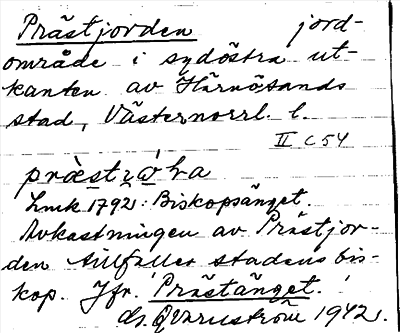 Prästjorden jord-
område i sydöstra ut-
kanten av Härnösands
stad, Västernorrl. l.
II C 54
Lmk 1792: Biskopsänget.
Avkastningen av Prästjor-
den tillfaller stadens bis-
kop. Jfr. Prästänget.
1942.